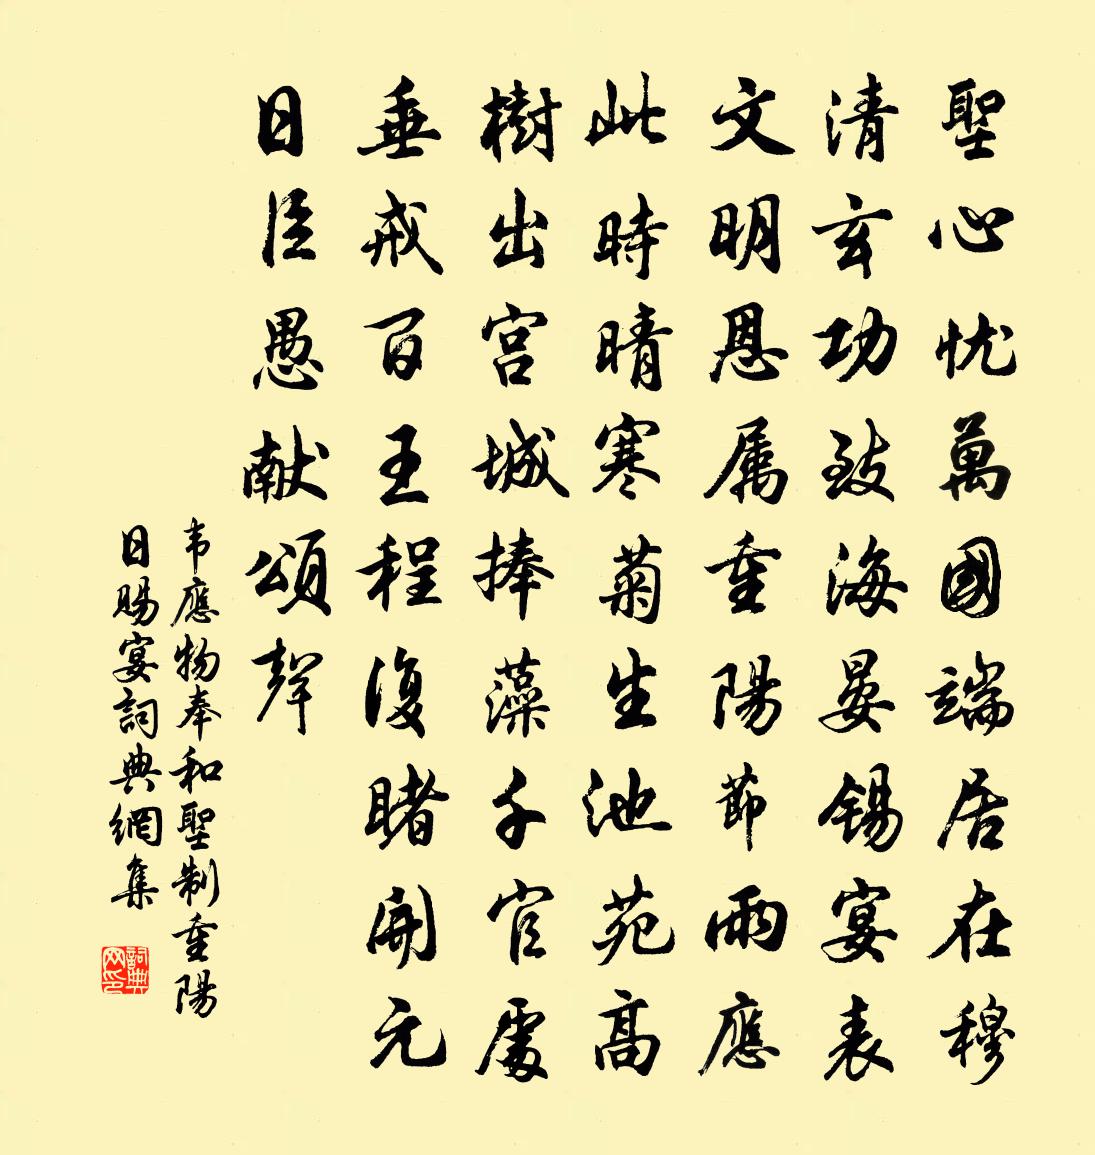 聖心忧萬國端居在穆
清玄功致海晏锡宴表
文明恩属重陽節雨應
此時晴寒菊生池苑高
樹出宫城捧藻千官處
垂戒百王程復睹開元
日臣愚献頌聲
韦應物奉和聖制重陽
日賜宴詞典網集
詞典网印